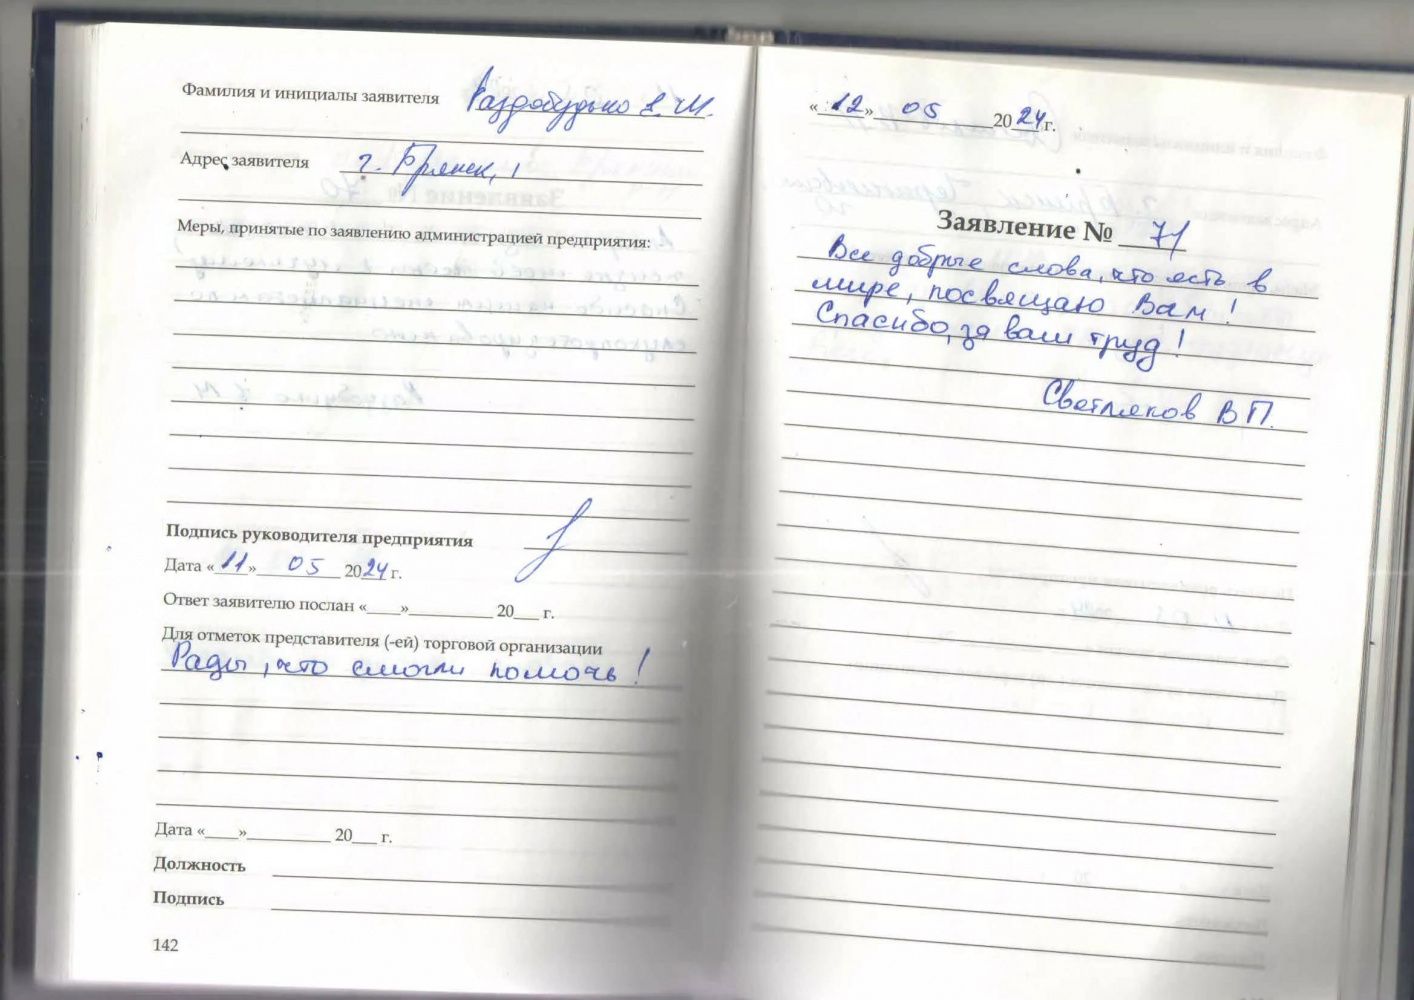 Фамилия и инициалы заявителя Раздобудько Е. М.
Адрес заявителя г. Брянск,
Меры, принятые по заявлению администрацией предприятия:
Подпись руководителя предприятия
Дата «11» 05 2024 г.
Ответ заявителю послан «____»__________ 20___ г.
Для отметок представителя (-ей) торговой организации
Рады, что смогли помочь!
Дата «____»__________ 20___ г.
Должность
Подпись
142
«12» 05 2024 г.
Заявление № 71
Все добрые слова, что есть в
мире, посвящаю Вам!
Спасибо, за ваш труд!
Светляков В П.